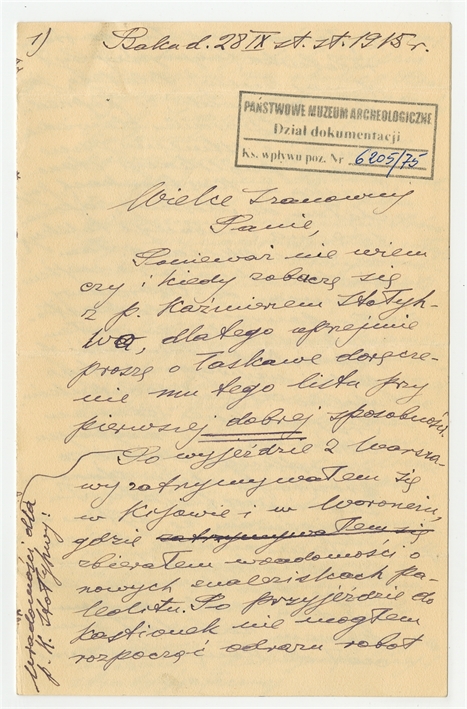 1)
Baku d. 28 IX st. st. 1915 r.
PAŃSTWOWE MUZEUM ARCHEOLOGICZNE
Dział dokumentacji
Ks. wpływu poz. Nr 6205/75
Wielce Szanowny
Panie,
Ponieważ nie wiem
czy i kiedy zobaczę się
z p. Kaźmierzem Stołyh-
wą, dlatego uprejmie
proszę o łaskawe doręcze-
nie mu tego listu przy
pierwszej dobrej sposobności.
Po wyjeździe z Warsza-
wy zatrzymywałem się
w Kijowie i w Woroneżu,
gdzie zatrzymywałem się
zbierałem wiadomości o
nowych znaleziskach pa-
leolitu. Po przyjeździe do
Kastionek nie mogłem
rozpocząć odrazu robot
Wiadomości dla
p. K. Stołyhwy!